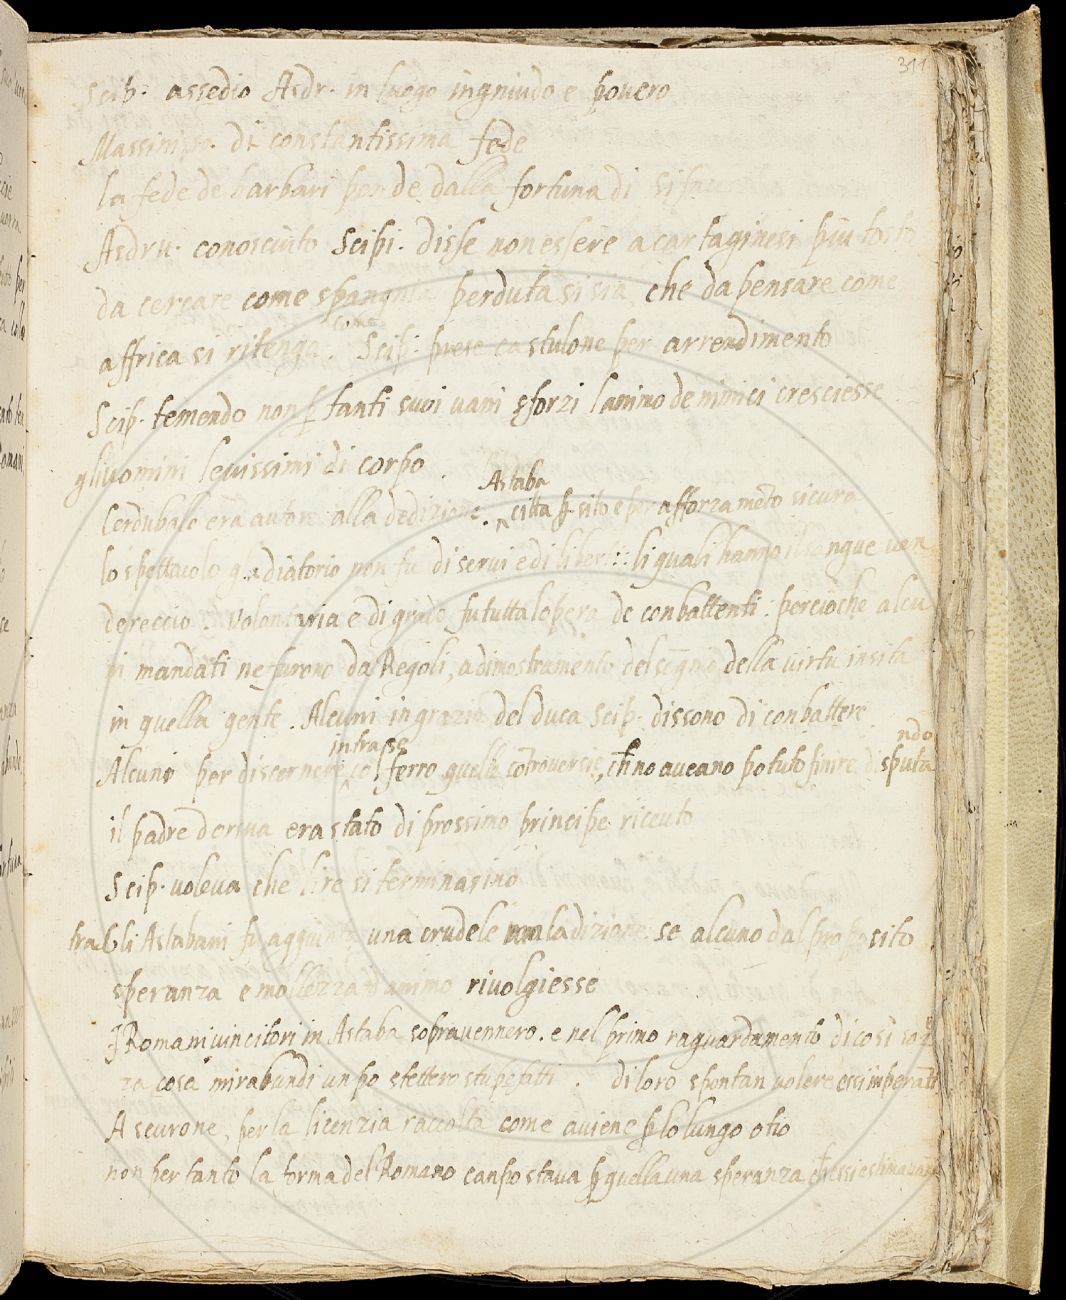 311
Scip. assedio Asdr. in luogo ingniudo e povero
Massinissa. di constantissima fede
la fede de barbari pende dalla fortuna di sifac
Asdru. conosciuto Scipi. disse non essere a cartaginesi piu tosto
da cercare come spangnia perduta si sia, che da pensare come
affrica si ritenga. Scip. prese castulone per arrendimento
Scip. temendo non p tanti suoi vani sforzi lanimo de nimici cresciesse
glhuomini levissimi di corpo.
Cerdubalo era autore alla dedizione. Astaba citta p sito e per afforzamento sicura
lo spettacolo gladiatorio non fu di servi e di liberti: li quali hanno il sangue ven
dereccio. Volontaria e di grado fu tutta lopera de conbattenti. percioche alcu
ni mandati ne furono da Regoli, a dimostramento del segnio della virtu insita
in quella gente. Alcuni in grazia del duca Scip. dissono di conbattere.
Alcuno per discernere infrasse col ferro quelle cotroversie, che no aveano potuto finire disputando
il padre dorsua era stato di prossimo principe ricevuto
Scip. voleva che lire si terminasino
tra gli Astabani fu aggiunta una crudele maladizione se alcuno dal proposito
speranza e mollezza d animo rivolgiesse
I Romani vincitori in Astaba sopravennero. e nel primo raguardamento di cosi soz
za cosa mirabundi un po stettero stupefatti. di loro spontan volere essi inperanti
A seurone, per la licenzia raccolta come aviene p lo lungo otio
non per tanto la forma del Romano canpo stava p quella una speranza ch essi estimavano